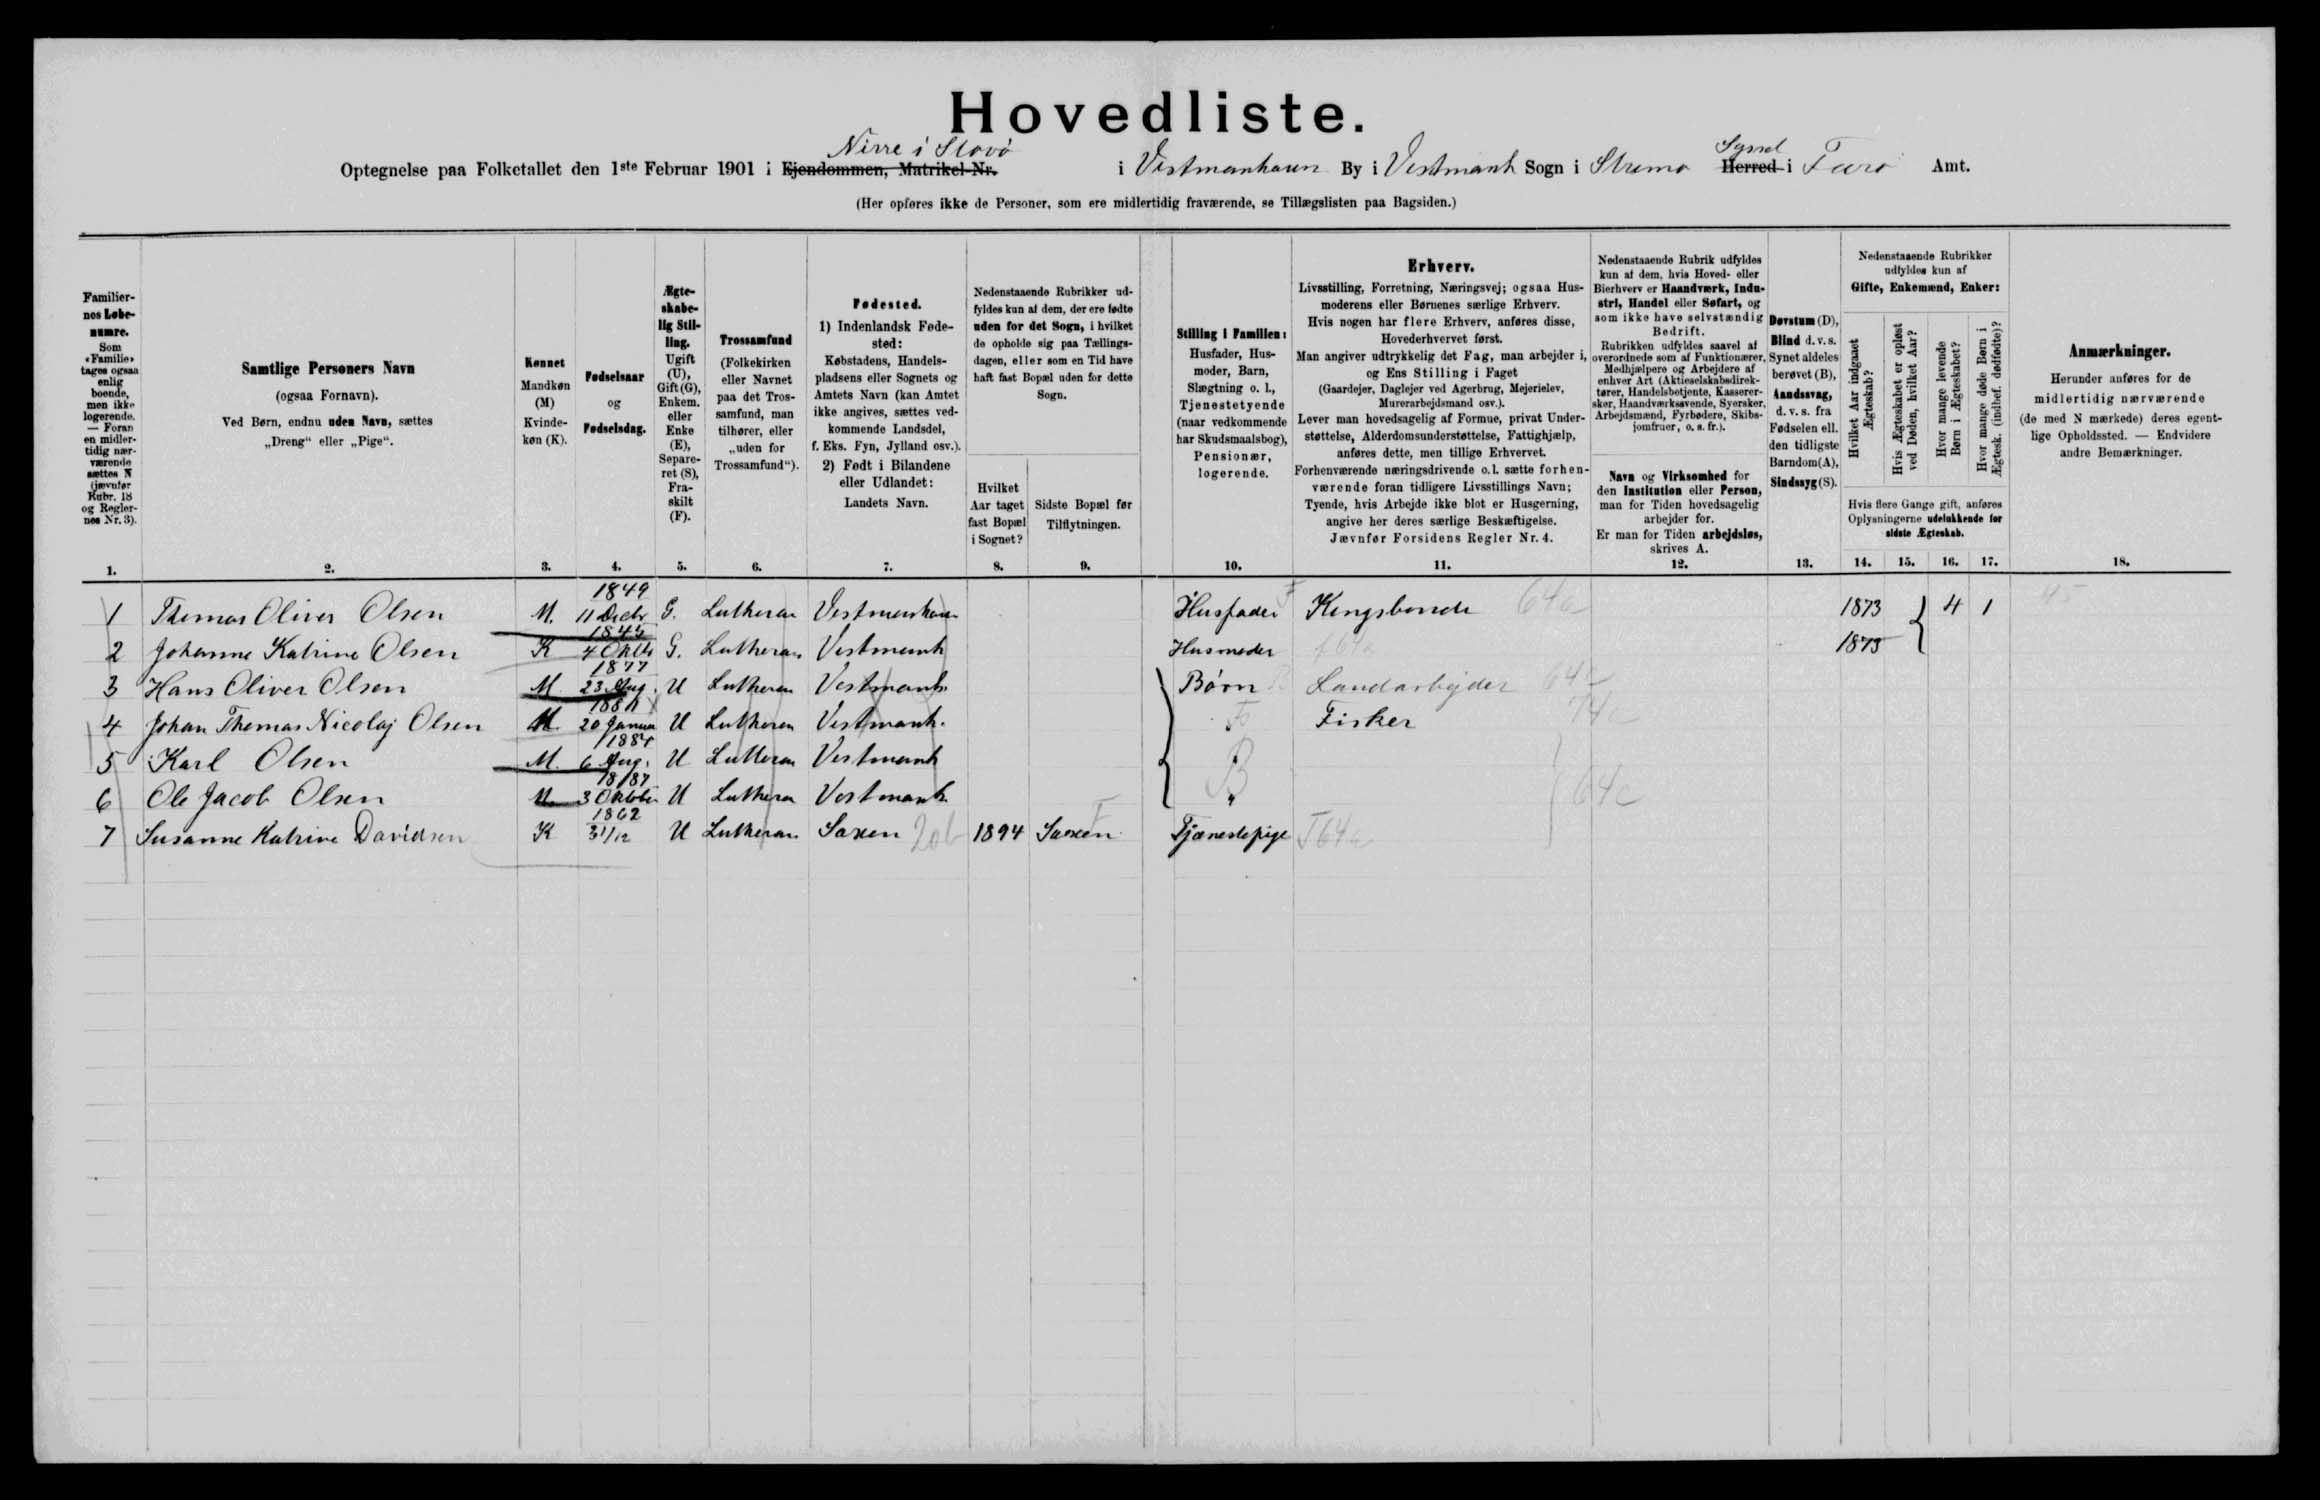 Hovedliste.
Nirre i Stovo
Optegnelse paa Folketallet den 1ste Februar 1901 i Ejendommen, Matrikel-Nr. i Vestmanhavn By i Vestmanh Sogn i Strømo Syssel Herred i Færø Amt.
(Her opføres ikke de Personer, som ere midlertidig fraværende, se Tillægslisten paa Bagsiden.)
Familiernes Løbenumre. Som «Familie» tages ogsaa enlig boende, men ikke logerende. — Foran en midlertidig nærværende sættes N (jævnfør Rubr. 18 og Reglernes Nr. 3).
Samtlige Personers Navn (ogsaa Fornavn). Ved Børn, endnu uden Navn, sættes „Dreng“ eller „Pige“.
Kønnet Mandkøn (M) Kvindekøn (K).
Fødselsaar og Fødselsdag.
Ægteskabelig Stilling. Ugift (U), Gift (G), Enkem. eller Enke (E), Separeret (S), Fraskilt (F).
Trossamfund (Folkekirken eller Navnet paa det Trossamfund, man tilhører, eller „uden for Trossamfund“).
Fødested. 1) Indenlandsk Fødested: Købstadens, Handelspladsens eller Sognets og Amtets Navn (kan Amtet ikke angives, sættes vedkommende Landsdel, f. Eks. Fyn, Jylland osv.). 2) Født i Bilandene eller Udlandet: Landets Navn.
Nedenstaaende Rubrikker udfyldes kun af dem, der ere fødte uden for det Sogn, i hvilket de opholde sig paa Tællingsdagen, eller som en Tid have haft fast Bopæl uden for dette Sogn.
Hvilket Aar taget fast Bopæl i Sognet?
Sidste Bopæl før Tilflytningen.
Stilling i Familien: Husfader, Husmoder, Barn, Slægtning o. l., Tjenestetyende (naar vedkommende har Skudsmaalsbog), Pensionær, logerende.
Erhverv.
Livsstilling, Forretning, Næringsvej; ogsaa Husmoderens eller Børnenes særlige Erhverv.
Hvis nogen har flere Erhverv, anføres disse, Hovederhvervet først.
Man angiver udtrykkelig det Fag, man arbejder i, og Ens Stilling i Faget
(Gaardejer, Daglejer ved Agerbrug, Mejerielev, Murerarbejdsmand osv.).
Lever man hovedsagelig af Formue, privat Understøttelse, Alderdomsunderstøttelse, Fattighjælp, anføres dette, men tillige Erhvervet.
Forhenværende næringsdrivende o. l. sætte forhenværende foran tidligere Livsstillings Navn;
Tyende, hvis Arbejde ikke blot er Husgerning, angive her deres særlige Beskæftigelse.
Jævnfør Forsidens Regler Nr. 4.
Nedenstaaende Rubrik udfyldes kun af dem, hvis Hoved- eller Bierhverv er Haandværk, Industri, Handel eller Søfart, og som ikke have selvstændig Bedrift.
Rubrikken udfyldes saavel af overordnede som af Funktionærer, Medhjælpere og Arbejdere af enhver Art (Aktieselskabsdirektører, Handelsbetjente, Kasserersker, Haandværkssvende, Syersker, Arbejdsmænd, Fyrbødere, Skibsjomfruer, o. s. fr.).
Navn og Virksomhed for den Institution eller Person, man for Tiden hovedsagelig arbejder for.
Er man for Tiden arbejdsløs, skrives A.
Døvstum (D), Blind d. v. s. Synet aldeles berøvet (B), Aandssvag, d. v. s. fra Fødselen ell. den tidligste Barndom (A), Sindssyg (S).
Nedenstaaende Rubrikker udfyldes kun af Gifte, Enkemænd, Enker:
Hvilket Aar indgaaet Ægteskab?
Hvis Ægteskabet er opløst ved Døden, hvilket Aar?
Hvor mange levende Børn i Ægteskabet?
Hvor mange døde Børn i Ægtesk. (indbef. dødfødte)?
Hvis flere Gange gift, anføres Oplysningerne udelukkende for sidste Ægteskab.
Anmærkninger. Herunder anføres for de midlertidig nærværende (de med N mærkede) deres egentlige Opholdssted. — Endvidere andre Bemærkninger.
1. 2. 3. 4. 5. 6. 7. 8. 9. 10. 11. 12. 13. 14. 15. 16. 17. 18.
1 Thomas Oliver Olsen M. 1849 11 Decbr G. Lutheran Vestmanhavn Husfader F Kongsbonde 64a 1873 4 1 45
2 Johanne Katrine Olsen K 1845 4 Oktb G. Lutheran Vestmanh Husmoder 1873
3 Hans Oliver Olsen M. 1877 23 Aug. U Lutheran Vestmanh. Børn B Landarbejder 64c
4 Johan Thomas Nicolaj Olsen M. 20 Januar U Lutheran Vestmanh. Fisker 74c
5 Karl Olsen M. 1884 6 Aug. U Lutheran Vestmanh B
6 Ole Jacob Olsen M. 1887 3 Oktober U Lutheran Vestmanh. " 64c
7 Susanne Katrine Davidsen K 1862 31/12 U Lutheran Saxen 20b 1894 Saxen F Tjenestepige T64a